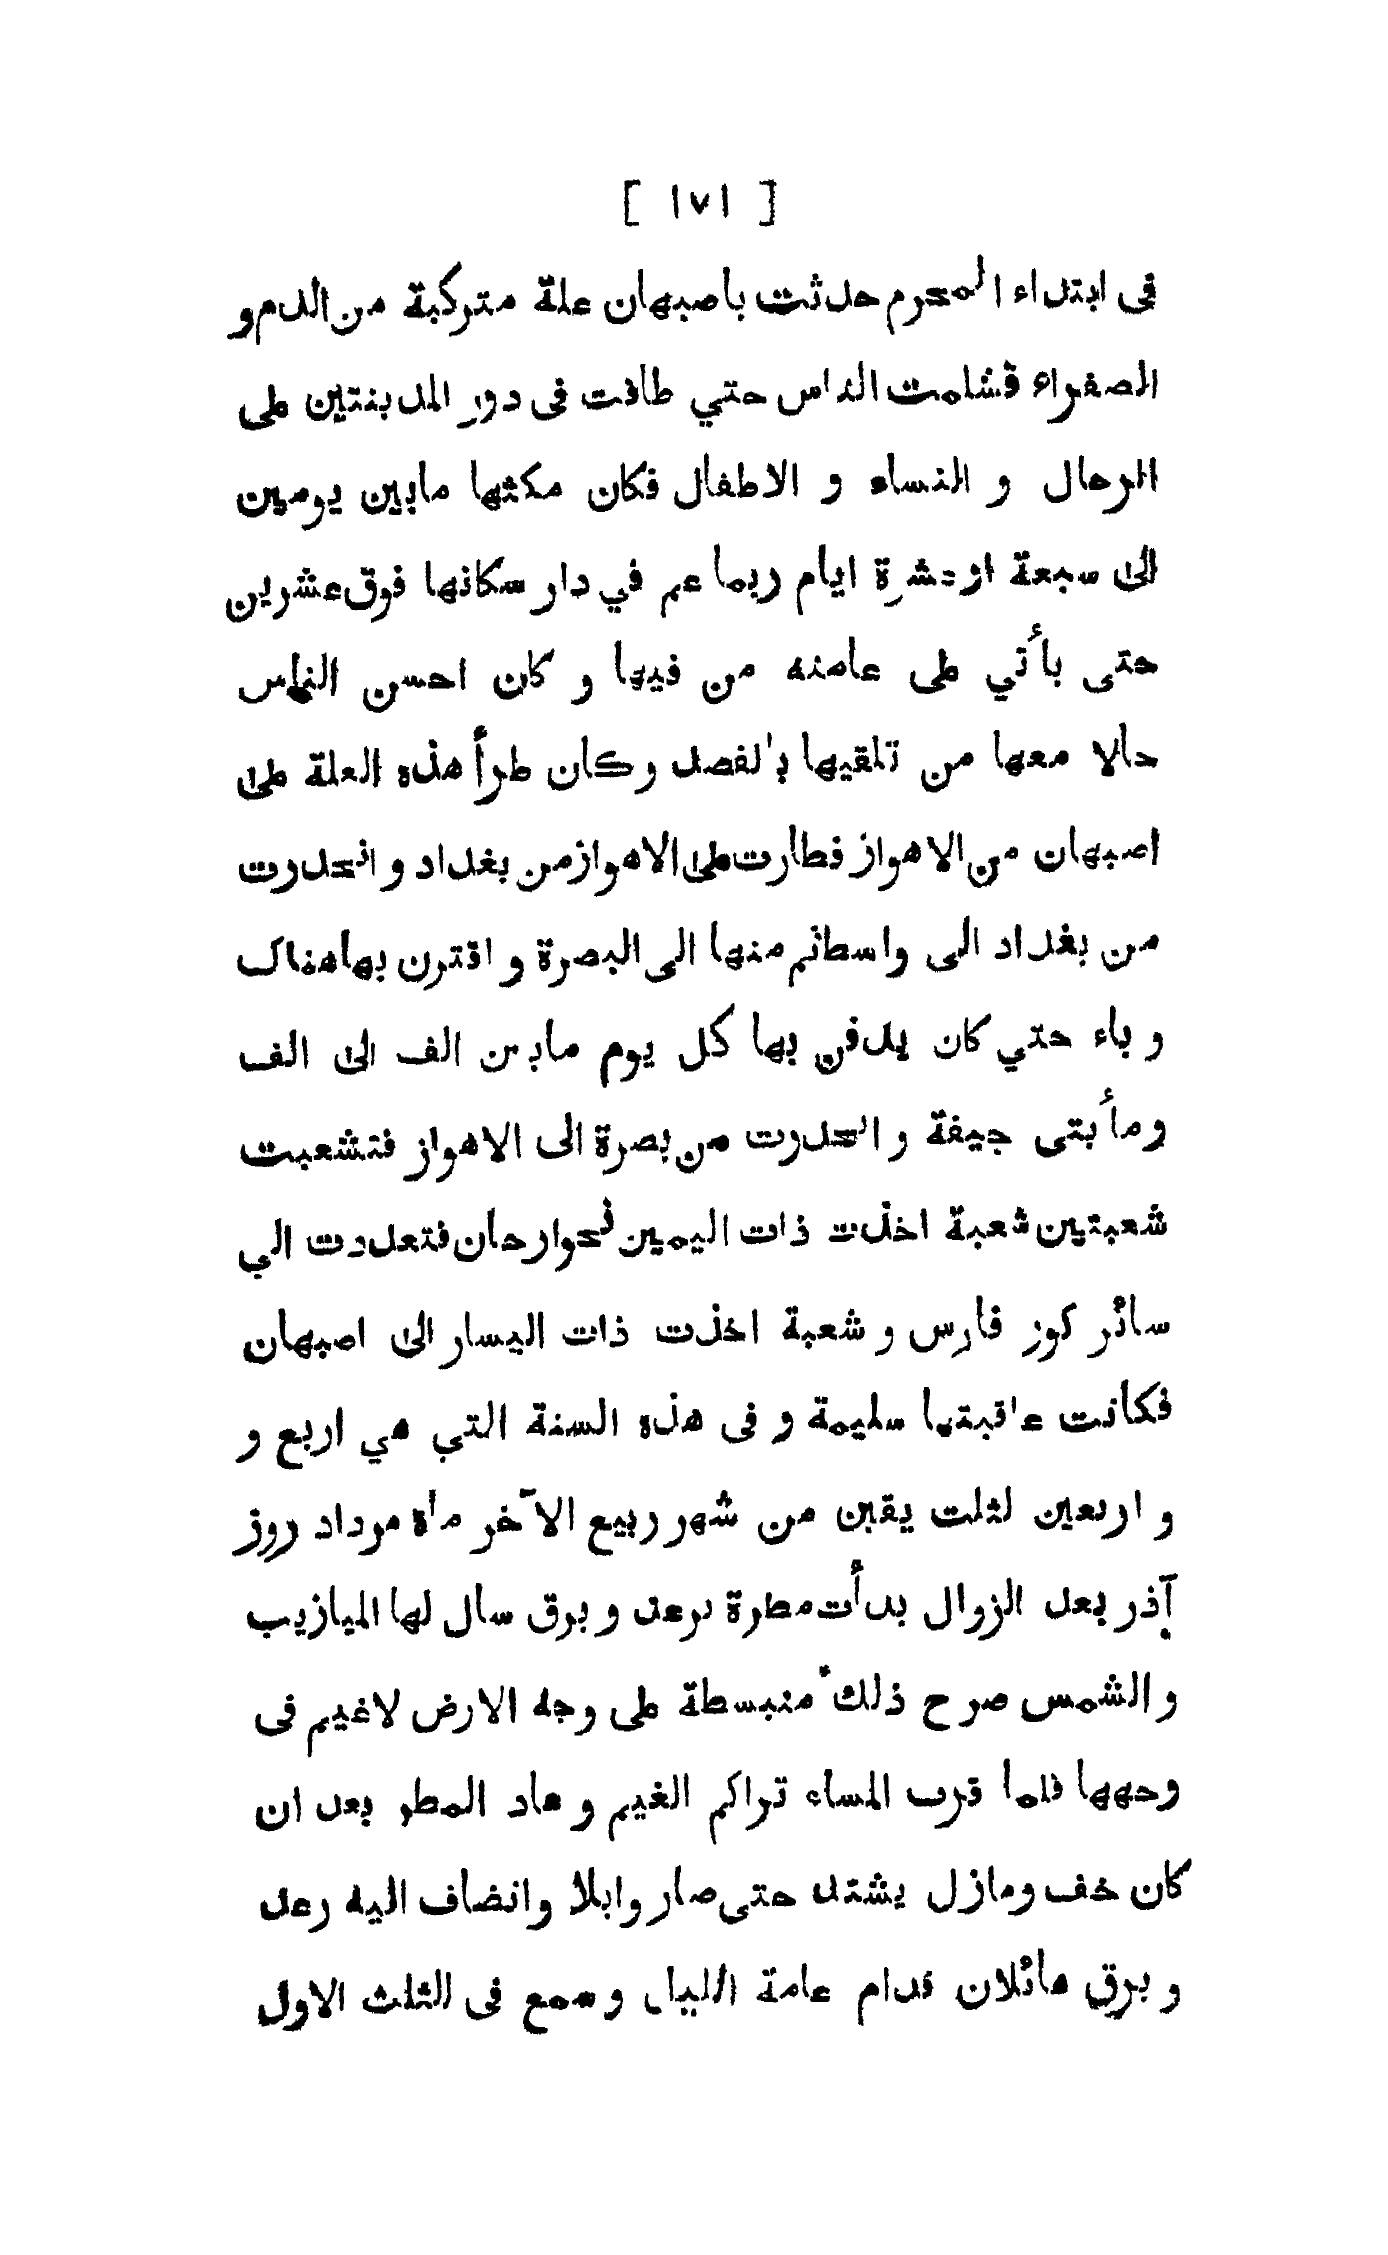 [ ١٧١ ]
فى ابتداء المحرم حدثت باصبهان علة متركبة من الدم و
الصفراء فشامت الناس حتي طافت فى دور المدينتين على
الرجال و النساء و الاطفال فكان مكثها مابين يومين
الى سبعة او عشرة ايام ربما عم في دار سكانها فوق عشرين
حتى يأتي على عامته من فيها و كان احسن الناس
حالا معها من تلقيها بالفصد وكان طرأ هذه العلة على
اصبهان من الاهواز فطارت على الاهواز من بغداد و انحدرت
من بغداد الى واسط ثم منها الى البصرة و اقترن بها هناك
و باء حتي كان يدفن بها كل يوم مابين الف الى الف
ومأ بتى جيفة و انحدرت من بصرة الى الاهواز فتشعبت
شعبتين شعبة اخذت ذات اليمين نحوارجان فتعددت الي
سائر كور فارس و شعبة اخذت ذات اليسار الى اصبهان
فكانت عاقبتها سليمة و فى هذه السنة التي هي اربع و
و اربعين لثلث يقين من شهر ربيع الآخر ماه مرداد روز
آذر بعد الزوال بدأت مطرة برعد و برق سال لها الميازيب
و الشمس صرح ذلك منبسطة على وجه الارض لاغيم فى
وجهها فلما قرب المساء تراكم الغيم و عاد المطر بعد ان
كان خف ومازل يشتد حتى صار وابلا وانضاف اليه رعد
و برق هائلان قدام عامة الليل وسمع فى الثلث الاول